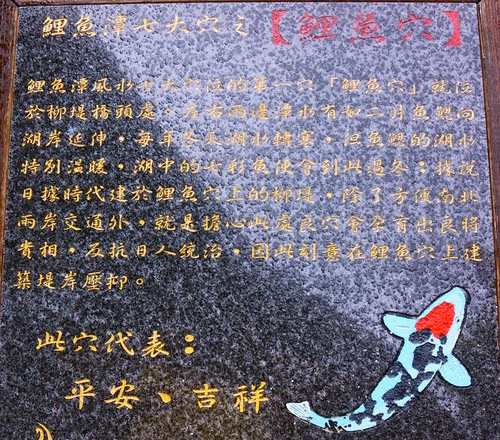 鯉魚潭七大穴之【鯉魚穴】
鯉魚潭風水七大穴位的第一穴「鯉魚穴」就位
於柳堤橋頭處，左右兩邊潭水有如二片魚鰓向
湖岸延伸，每年冬天湖水轉寒，但魚鰓的湖水
特別溫暖，湖中的七彩魚便會到此過冬；據說
日據時代建於鯉魚穴上的柳堤，除了方便南北
兩岸交通外，就是擔心此處良穴會孕育出良將
貴相，反抗日人統治，因此刻意在鯉魚穴上建
築堤岸壓抑。
此穴代表：
平安、吉祥